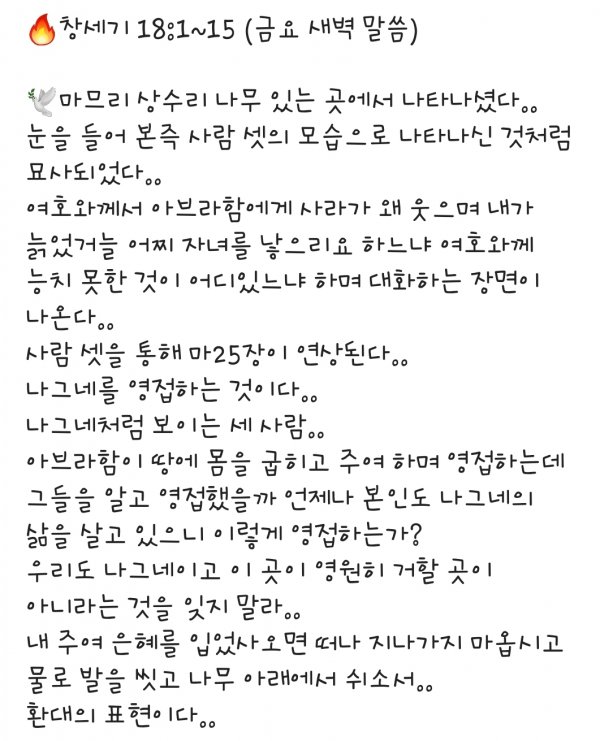 🔥창세기 18:1~15 (금요 새벽 말씀)
🕊마므리 상수리 나무 있는 곳에서 나타나셨다..
눈을 들어 본즉 사람 셋의 모습으로 나타나신 것처럼
묘사되었다..
여호와께서 아브라함에게 사라가 왜 웃으며 내가
늙었거늘 어찌 자녀를 낳으리요 하느냐 여호와께
능치 못한 것이 어디있느냐 하며 대화하는 장면이
나온다..
사람 셋을 통해 마25장이 연상된다..
나그네를 영접하는 것이다..
나그네처럼 보이는 세 사람..
아브라함이 땅에 몸을 굽히고 주여 하며 영접하는데
그들을 알고 영접했을까 언제나 본인도 나그네의
삶을 살고 있으니 이렇게 영접하는가?
우리도 나그네이고 이 곳이 영원히 거할 곳이
아니라는 것을 잊지 말라..
내 주여 은혜를 입었사오면 떠나 지나가지 마옵시고
물로 발을 씻고 나무 아래에서 쉬소서..
환대의 표현이다..